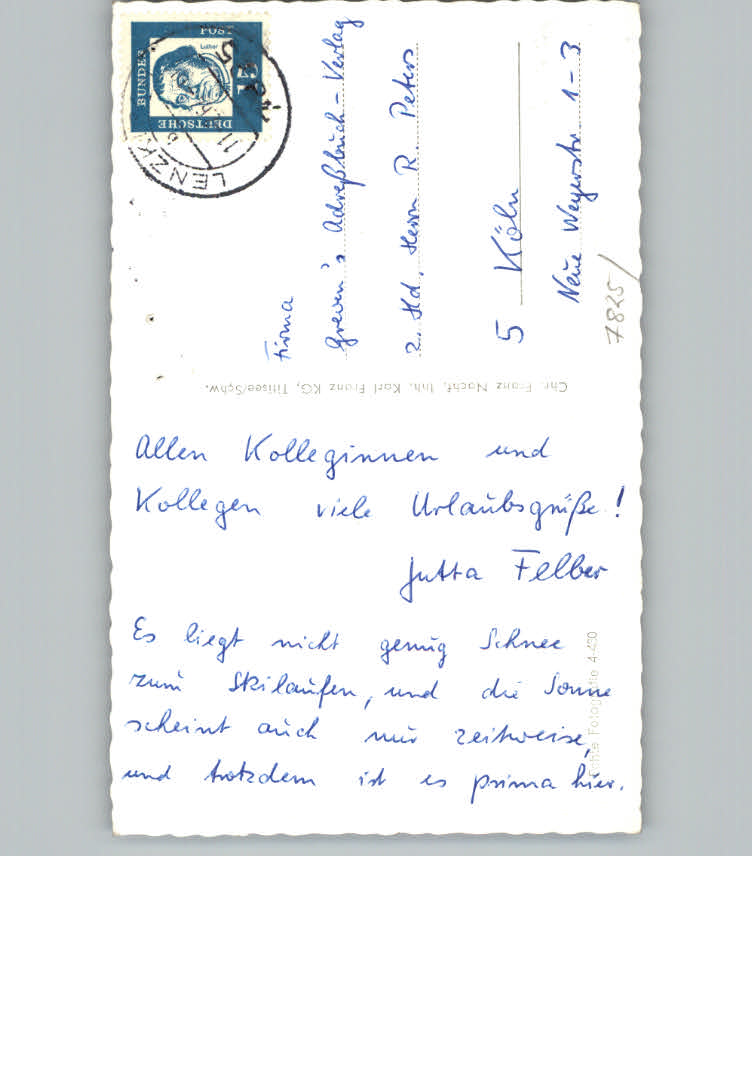 DEUTSCHE
BUNDES
POST
Luther
15
LENZK
Firma
Greven's Adreßbuch-Verlag
z. Hd. Herrn R. Peters
5 Köln
Neue Weyerstr. 1-3
7825/
Chr. Franz Nachf. Inh. Karl Franz KG, Titisee/Schw.
Allen Kolleginnen und
Kollegen viele Urlaubsgrüße!
Jutta Felber
Es liegt nicht genug Schnee
zum Skilaufen, und die Sonne
scheint auch nur zeitweise,
und trotzdem ist es prima hier.
Echte Fotografie 4-430